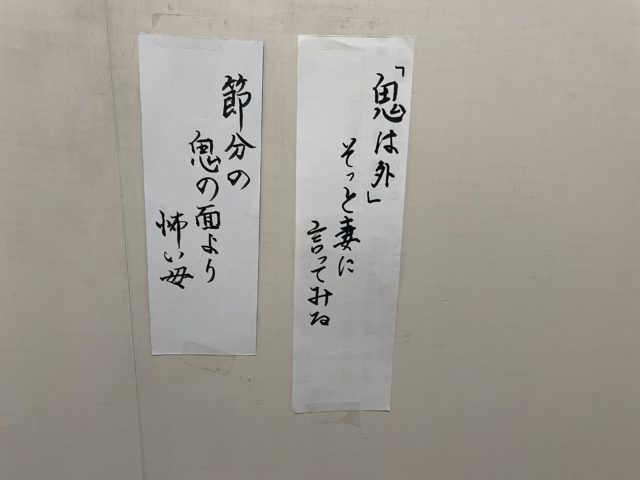 「鬼は外」
そっと妻に
言ってみる
節分の
鬼の面より
怖い母